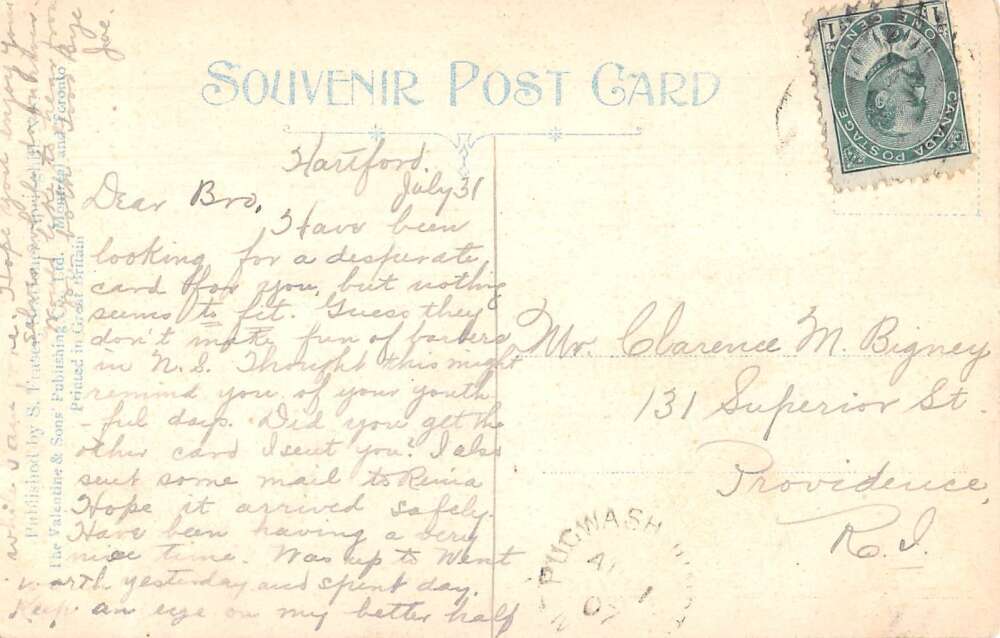 SOUVENIR POST CARD
Hartford.
July 31
Dear Bro.
Have been
looking for a desperate
card for you, but nothing
seems to fit. Guess they
don't make fun of barbers
in N.S. Thought this might
remind you of your youth
-ful days. Did you get the
other card I sent you? I also
sent some mail to Reina
Hope it arrived safely.
Have been having a very
nice time. Was up to Went
worth yesterday and spent day.
Keep an eye on my better half
while I am Hope you enjoy your
to hear from
you both Good Bye
Joe.
Published by S.
The Valentine & Sons' Publishing Co., Ltd. (Montreal and Toronto)
Printed in Great Britain
CANADA POSTAGE
ONE CENT
1 1
Mr. Clarence M. Bigney
131 Superior St.
Providence,
R.I.
PUGWASH
1